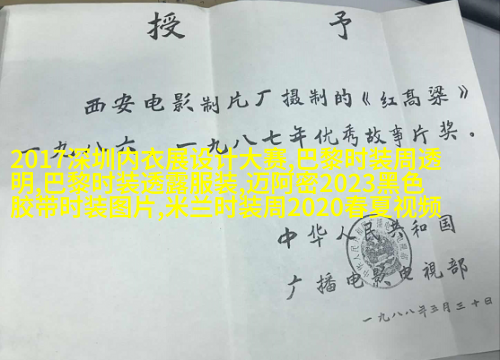 授 予
西安电影制片厂摄制的《红高粱》
一九八六—一九八七年优秀故事片奖。
2017深圳内衣展设计大赛,巴黎时装周透
明,巴黎时装透露服装,迈阿密2023黑色
胶带时装图片,米兰时装周2020春夏视频
中华人民共和国
广播电影电视部
一九八八年三月三十日